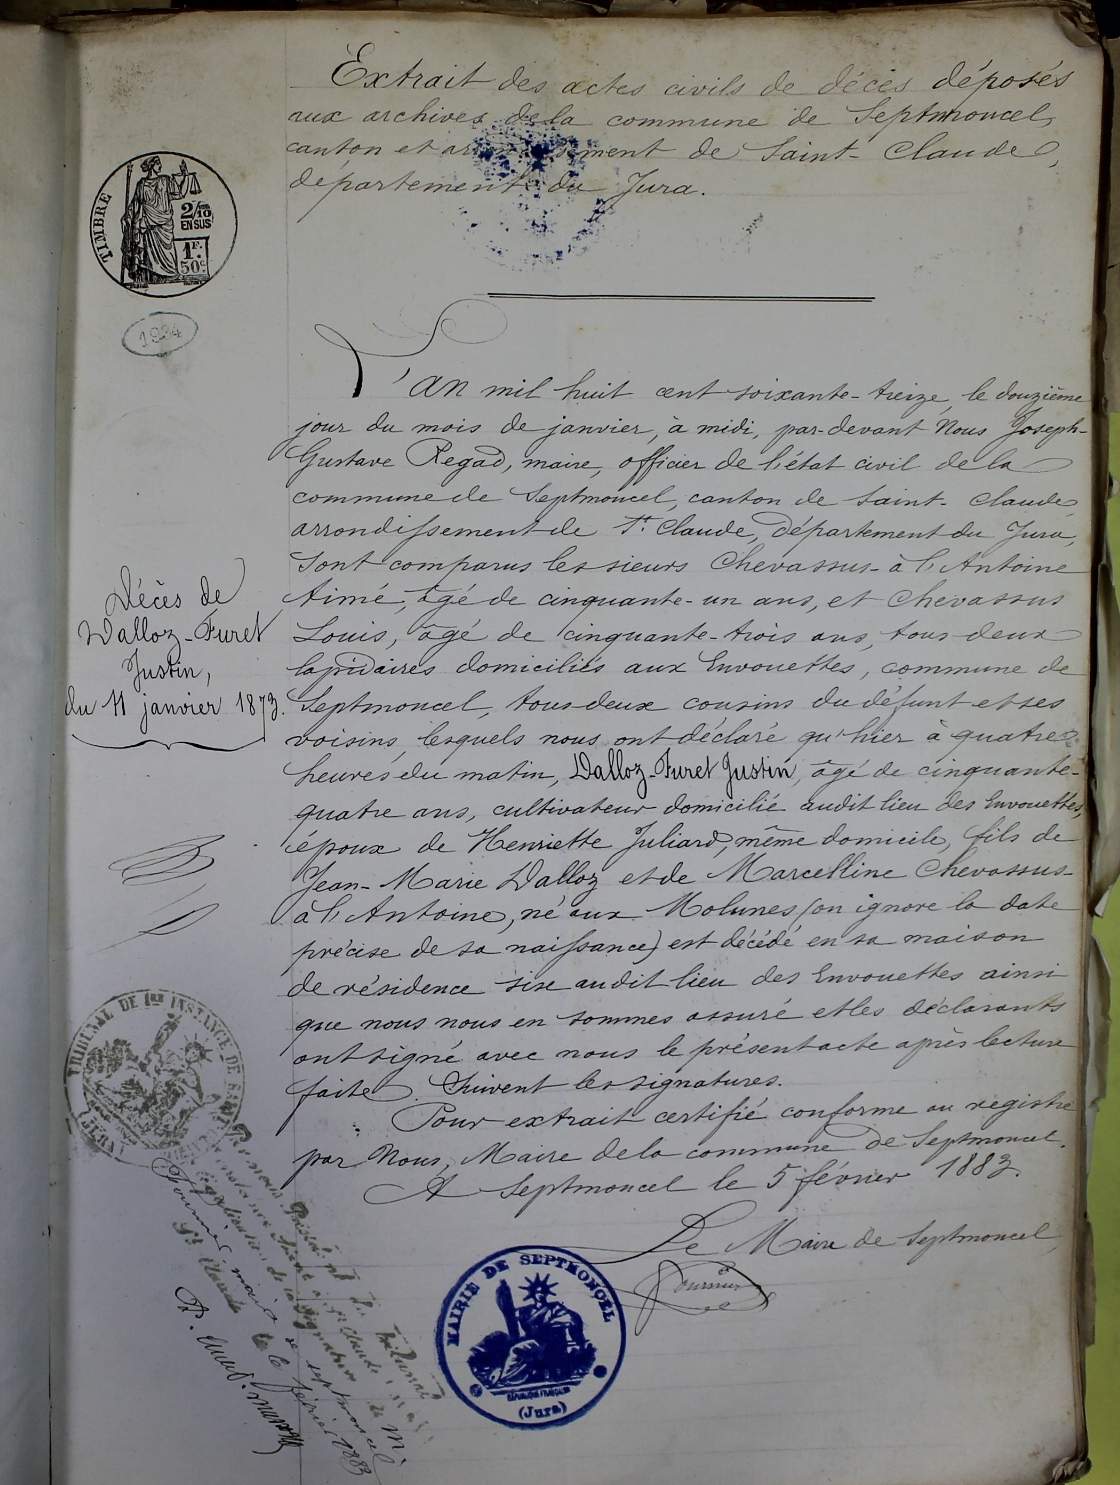 Extrait des actes civils de décès déposés
aux archives de la commune de Septmoncel,
canton et arrondissement de Saint-Claude,
département du Jura.
TIMBRE
2/10
EN SUS
1F.
50c
1924
L'an mil huit cent soixante-treize, le douzième
jour du mois de janvier, à midi, par-devant Nous Joseph-
Gustave Regad, maire, officier de l'état civil de la
commune de Septmoncel, canton de Saint-Claude
arrondissement de St. Claude, département du Jura,
Sont comparus les sieurs Chevassus-à l'Antoine
Aimé, âgé de cinquante-un ans, et Chevassus
Louis, âgé de cinquante-trois ans, tous deux
lapidaires domiciliés aux Envouettes, commune de
Septmoncel, tous deux cousins du défunt et ses
voisins, lesquels nous ont déclaré qu'hier à quatre
heures du matin, Dalloz-Furet Justin, âgé de cinquante-
quatre ans, cultivateur domicilié audit lieu des Envouettes,
époux de Henriette Juliard, même domicile, fils de
Jean-Marie Dalloz et de Marcelline Chevassus-
à l'Antoine, né aux Molunes (on ignore la date
précise de sa naissance) est décédé en sa maison
de résidence sise audit lieu des Envouettes ainsi
que nous nous en sommes assuré et les déclarants
ont signé avec nous le présent acte après lecture
faite. Suivent les signatures.
Pour extrait certifié conforme au registre
par Nous, Maire de la commune de Septmoncel.
A Septmoncel le 5 février 1883.
Le Maire de Septmoncel,
Fournier
Décès de
Dalloz-Furet
Justin,
du 11 janvier 1873.
TRIBUNAL DE 1ERE INSTANCE DE
(JURA)
Tribunal
St Claude
légalisation de la signature de M.
Fournier maire de Septmoncel
St Claude le février 1883
MAIRIE DE SEPTMONCEL
(Jura)